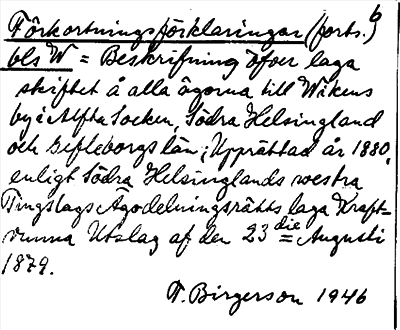 6
Förkortningsförklaringar (forts.)
bls W = Beskrifning öfver laga
skiftet å alla ägorna till Wikens
by i Alfta Socken, Södra Helsingland
och Gefleborgs län; Upprättad år 1880,
enligt Södra Helsinglands westra
Tingslags Ägodelningsrätts laga Kraft-
vunna Utslag af den 23die Augusti
1879.
T. Birgerson 1946